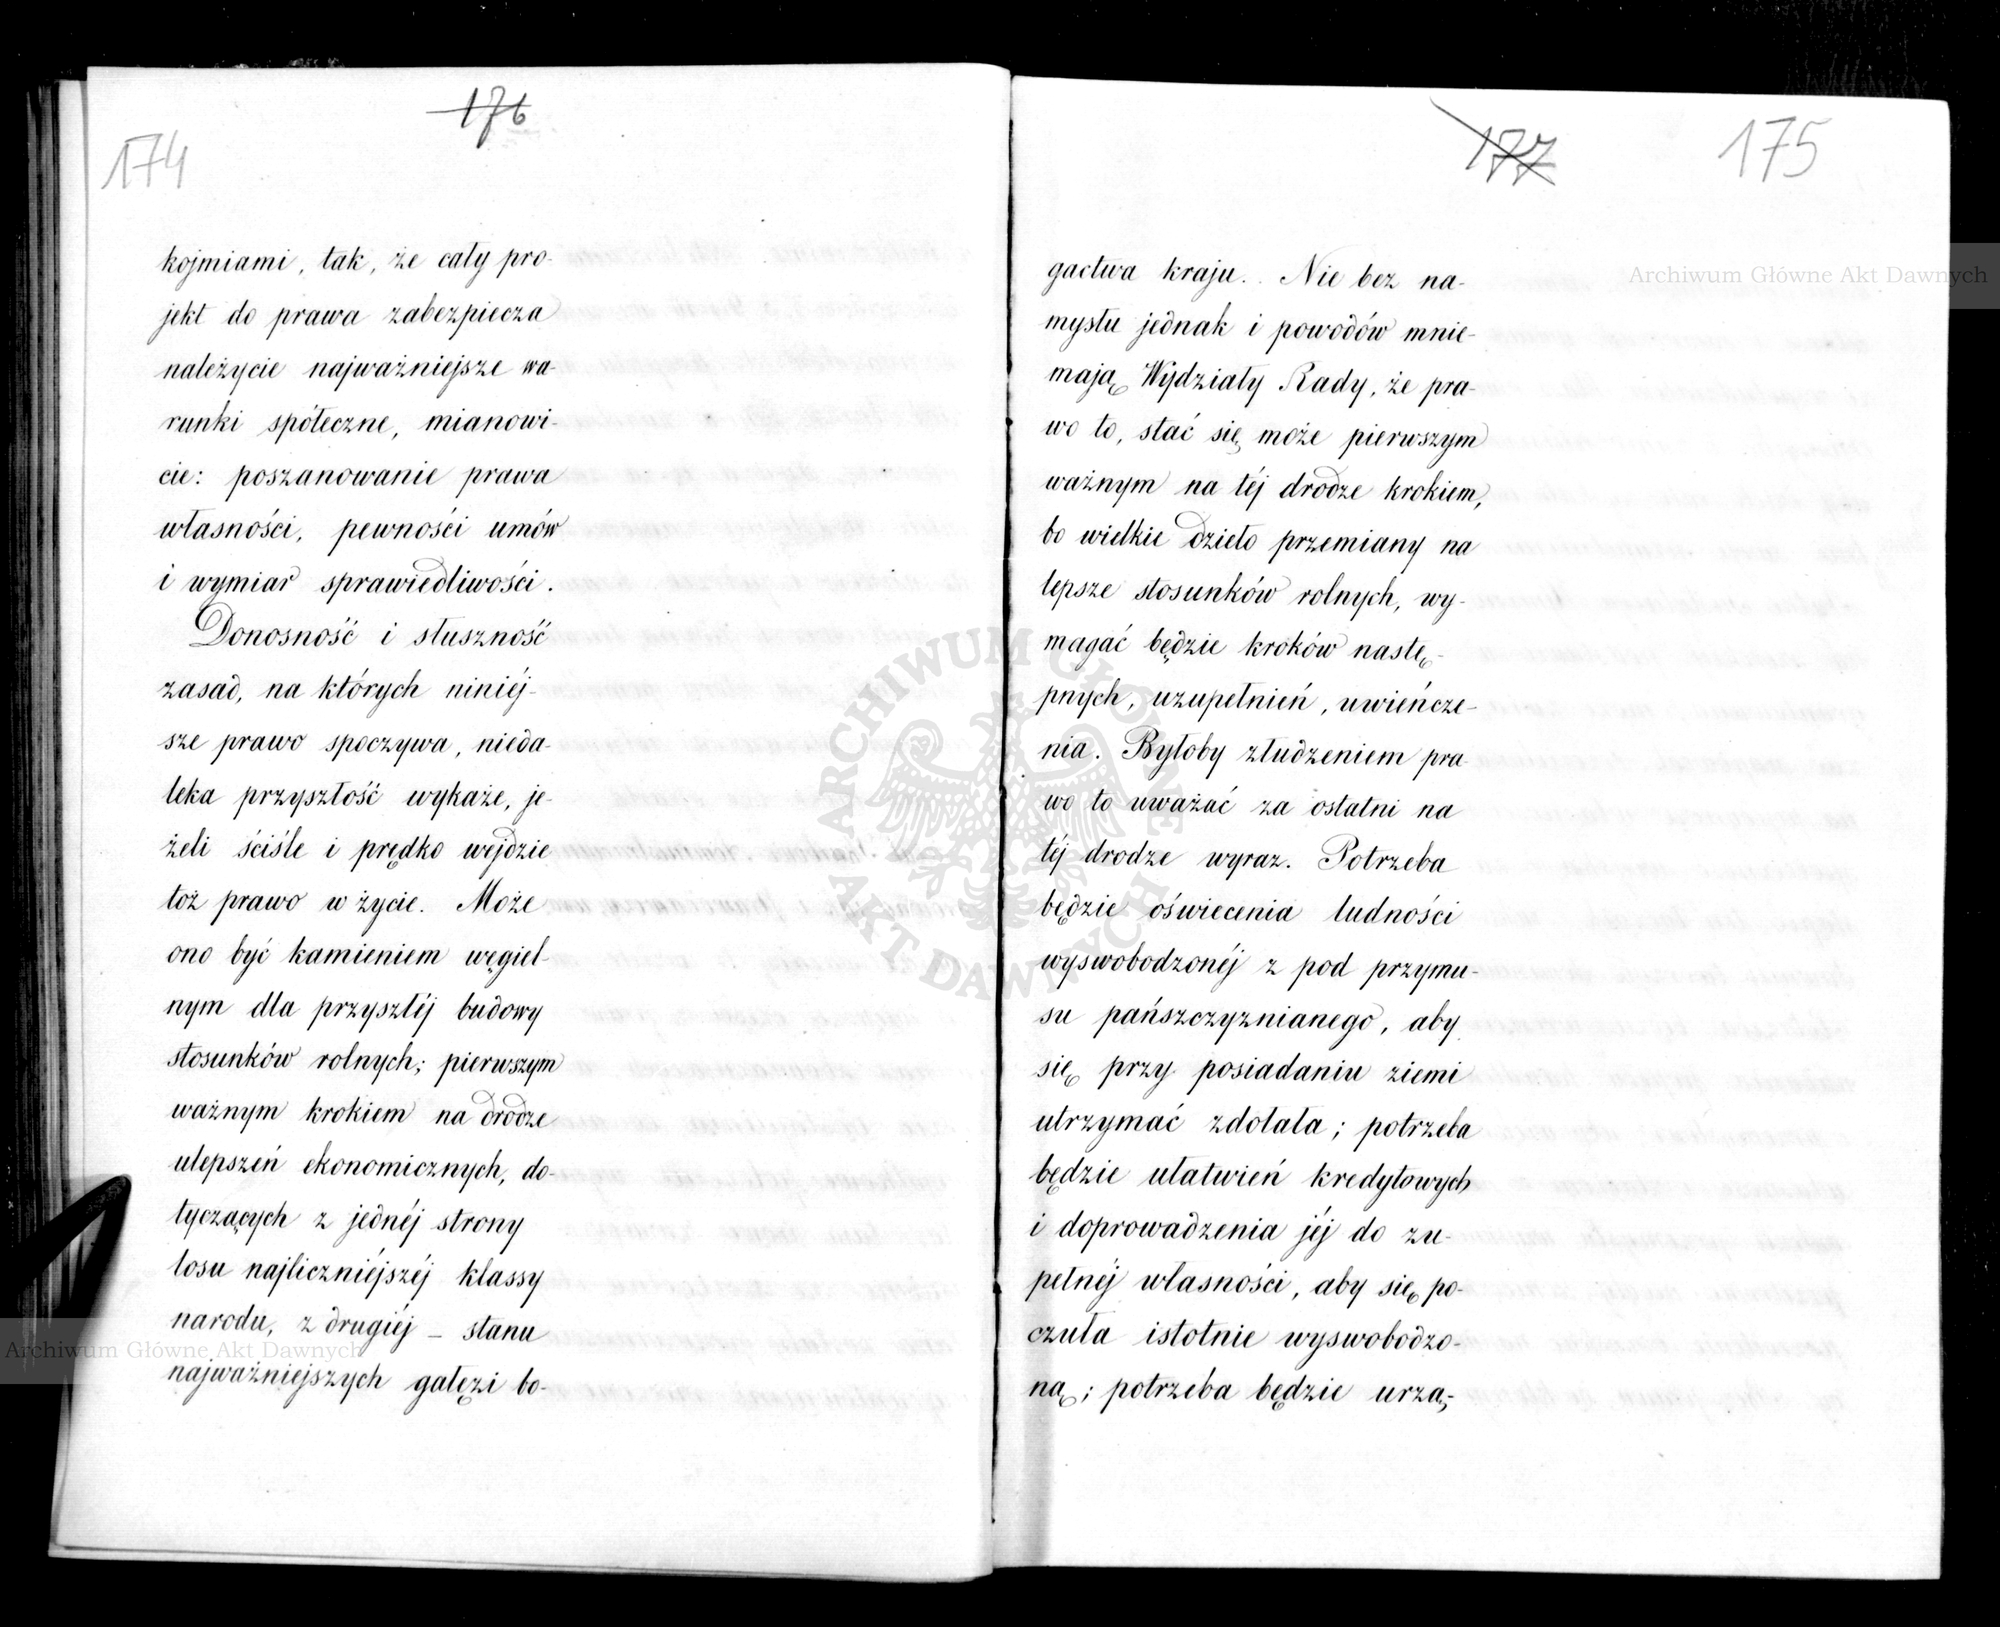 174
176
kojmiami, tak, że cały pro-
jekt do prawa zabezpiecza
należycie najważniejsze wa-
runki spółeczne, mianowi-
cie: poszanowanie prawa
własności, pewności umów
i wymiar sprawiedliwości.
Donosność i słuszność
zasad, na których niniéj-
sze prawo spoczywa, nieda-
leka przyszłość wykaże, je-
żeli ściśle i prędko wejdzie
toż prawo w życie. Może
ono być kamieniem węgiel-
nym dla przyszłéj budowy
stosunków rolnych; pierwszym
ważnym krokiem na drodze
ulepszeń ekonomicznych, do-
tyczących z jednéj strony
losu najliczniéjszéj klassy
narodu, z drugiéj – stanu
najważniejszych gałęzi bo-
177
175
gactwa kraju. Nie bez na-
mysłu jednak i powodów mnie-
mają Wydziały Rady, że pra-
wo to, stać się może pierwszym
ważnym na téj drodze krokiem,
bo wielkie dzieło przemiany na
lepsze stosunków rolnych, wy-
magać będzie kroków nastę-
pnych, uzupełnień, uwieńcze-
nia. Byłoby złudzeniem pra-
wo to uważać za ostatni na
téj drodze wyraz. Potrzeba
będzie oświecenia ludności
wyswobodzonéj z pod przymu-
su pańszczyznianego, aby
się przy posiadaniu ziemi
utrzymać zdołała; potrzeba
będzie ułatwień kredytowych
i doprowadzenia jéj do zu-
pełnéj własności, aby się po-
czuła istotnie wyswobodzo-
ną; potrzeba będzie urzą-
Archiwum Główne Akt Dawnych
ARCHIWUM GŁÓWNE
AKT DAWNYCH
Archiwum Główne Akt Dawnych